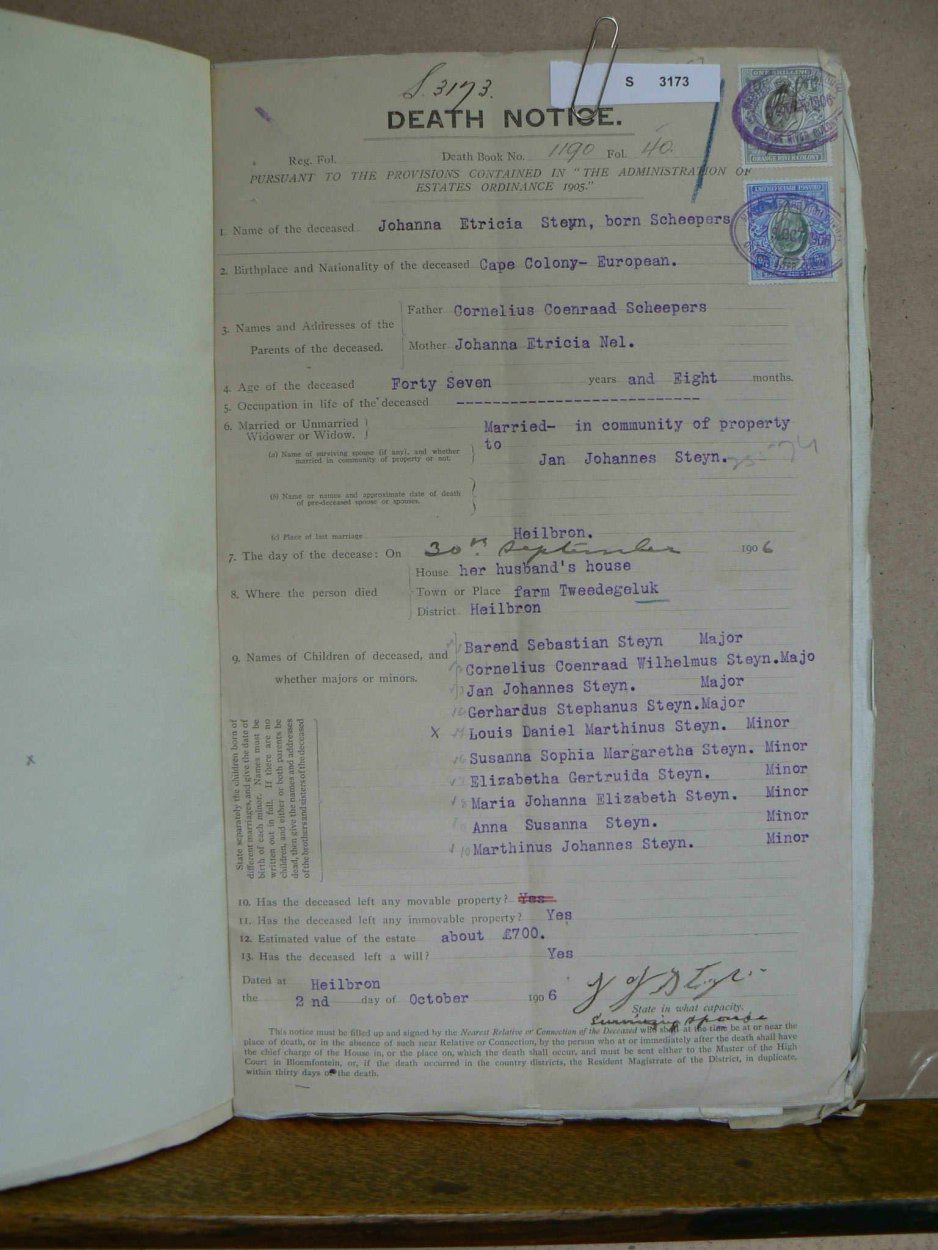 S.3173.
S 3173
DEATH NOTICE.
Reg. Fol. Death Book No. 1190 Fol. 40.
PURSUANT TO THE PROVISIONS CONTAINED IN "THE ADMINISTRATION OF
ESTATES ORDINANCE 1905."
ONE SHILLING
ORANGE RIVER COLONY
ORANGE RIVER COLONY
1. Name of the deceased Johanna Etricia Steyn, born Scheepers
2. Birthplace and Nationality of the deceased Cape Colony- European.
3. Names and Addresses of the
Parents of the deceased.
Father Cornelius Coenraad Scheepers
Mother Johanna Etricia Nel.
4. Age of the deceased Forty Seven years and Eight months.
5. Occupation in life of the deceased ---------------------------
6. Married or Unmarried
Widower or Widow.
Married- in community of property
to
(a) Name of surviving spouse (if any), and whether
married in community of property or not.
Jan Johannes Steyn.
(b) Name or names and approximate date of death
of pre-deceased spouse or spouses.
(c) Place of last marriage Heilbron.
7. The day of the decease: On 30th September 1906
8. Where the person died
House her husband's house
Town or Place farm Tweedegeluk
District Heilbron
9. Names of Children of deceased, and
whether majors or minors.
Barend Sebastian Steyn Major
Cornelius Coenraad Wilhelmus Steyn.Majo
Jan Johannes Steyn. Major
Gerhardus Stephanus Steyn.Major
X Louis Daniel Marthinus Steyn. Minor
Susanna Sophia Margaretha Steyn. Minor
Elizabetha Gertruida Steyn. Minor
Maria Johanna Elizabeth Steyn. Minor
Anna Susanna Steyn. Minor
10 Marthinus Johannes Steyn. Minor
State separately the children born of
different marriages, and give the date of
birth of each minor. Names must be
written out in full. If there are no
children, and either or both parents be
dead, then give the names and addresses
of the brothers and sisters of the deceased
x
10. Has the deceased left any movable property? Yes
11. Has the deceased left any immovable property? Yes
12. Estimated value of the estate about £700.
13. Has the deceased left a will? Yes
Dated at Heilbron
the 2 nd day of October 1906
J J Steyn
State in what capacity.
Surviving spouse
This notice must be filled up and signed by the Nearest Relative or Connection of the Deceased who shall at the time be at or near the
place of death, or in the absence of such near Relative or Connection, by the person who at or immediately after the death shall have
the chief charge of the House in, or the place on, which the death shall occur, and must be sent either to the Master of the High
Court in Bloemfontein, or, if the death occurred in the country districts, the Resident Magistrate of the District, in duplicate,
within thirty days of the death.